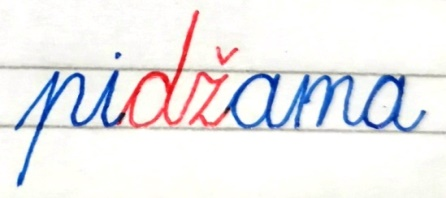 pidžama